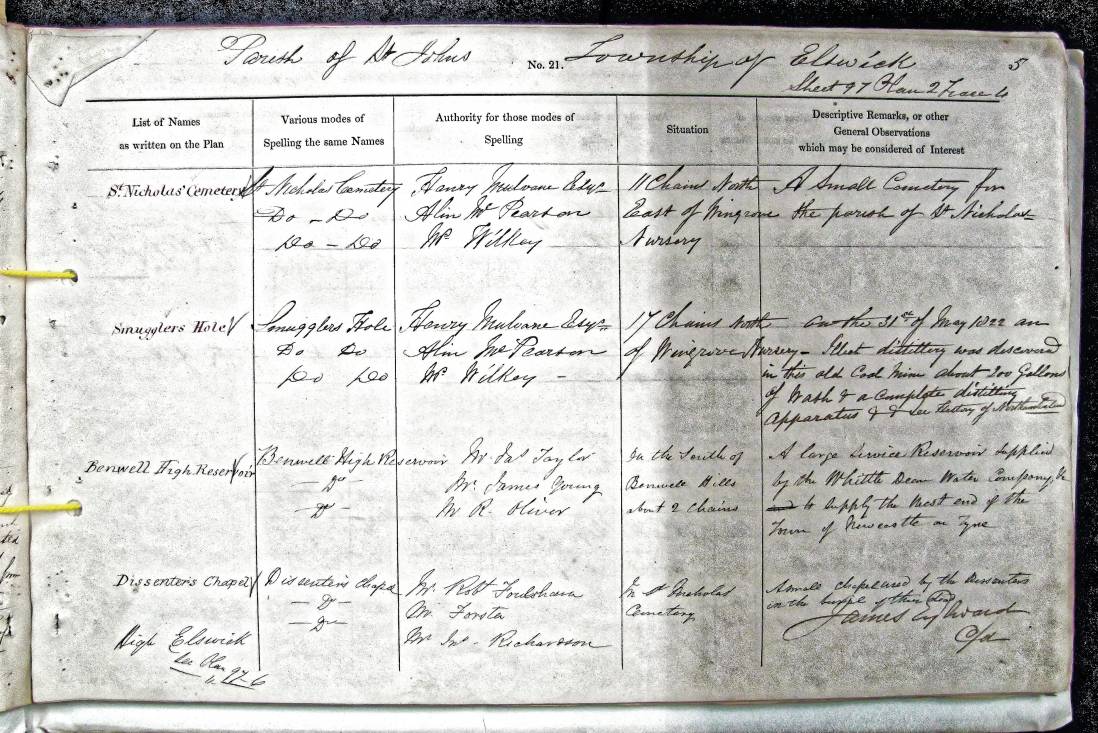 Parish of St Johns No. 21. Township of Elswick 5
Sheet 97 Plan 2 Trace 4
List of Names
as written on the Plan
Various modes of
Spelling the same Names
Authority for those modes of
Spelling
Situation
Descriptive Remarks, or other
General Observations
which may be considered of Interest
St. Nicholas' Cemetery
St Nicholas Cemetery
Do - Do
Do - Do
Henry Mulvane Esqr
Alin Mc Pearson
Mr Wilkey
11 Chains North
East of Wingrove
Nursery
A Small Cemetery for
the parish of St Nicholas
Smugglers Hole
Smugglers Hole
Do Do
Do Do
Henry Mulvane Esqr
Alin Mc Pearson
Mr Wilkey -
17 Chains North
of Wingrove Nursery -
on the 31st of May 1822 an
Illicit distillery was discovered
in this old Coal Mine about 200 Gallons
of Wash & a complete distilling
Apparatus & & see History of Northumberland
Benwell High Reservoir
Benwell High Reservoir
- Do -
- Do -
Mr Jas Taylor
Mr. James Young
Mr R. Oliver
In the South of
Benwell Hills
about 2 Chains
A large Service Reservoir Supplied
by the Whittle Dean Water Company, &
to supply the West end of the
Town of Newcastle on Tyne
Dissenters Chapel
Dissenters Chapel
- Do -
- Do -
Mr. Robt
Mr. Forster
Mr Jno. Richardson
In St Nicholas
Cemetery
A small chapel used by the Dissenters
in the of their Dead
James Wand
C/a
High Elswick
See Plan 97-6